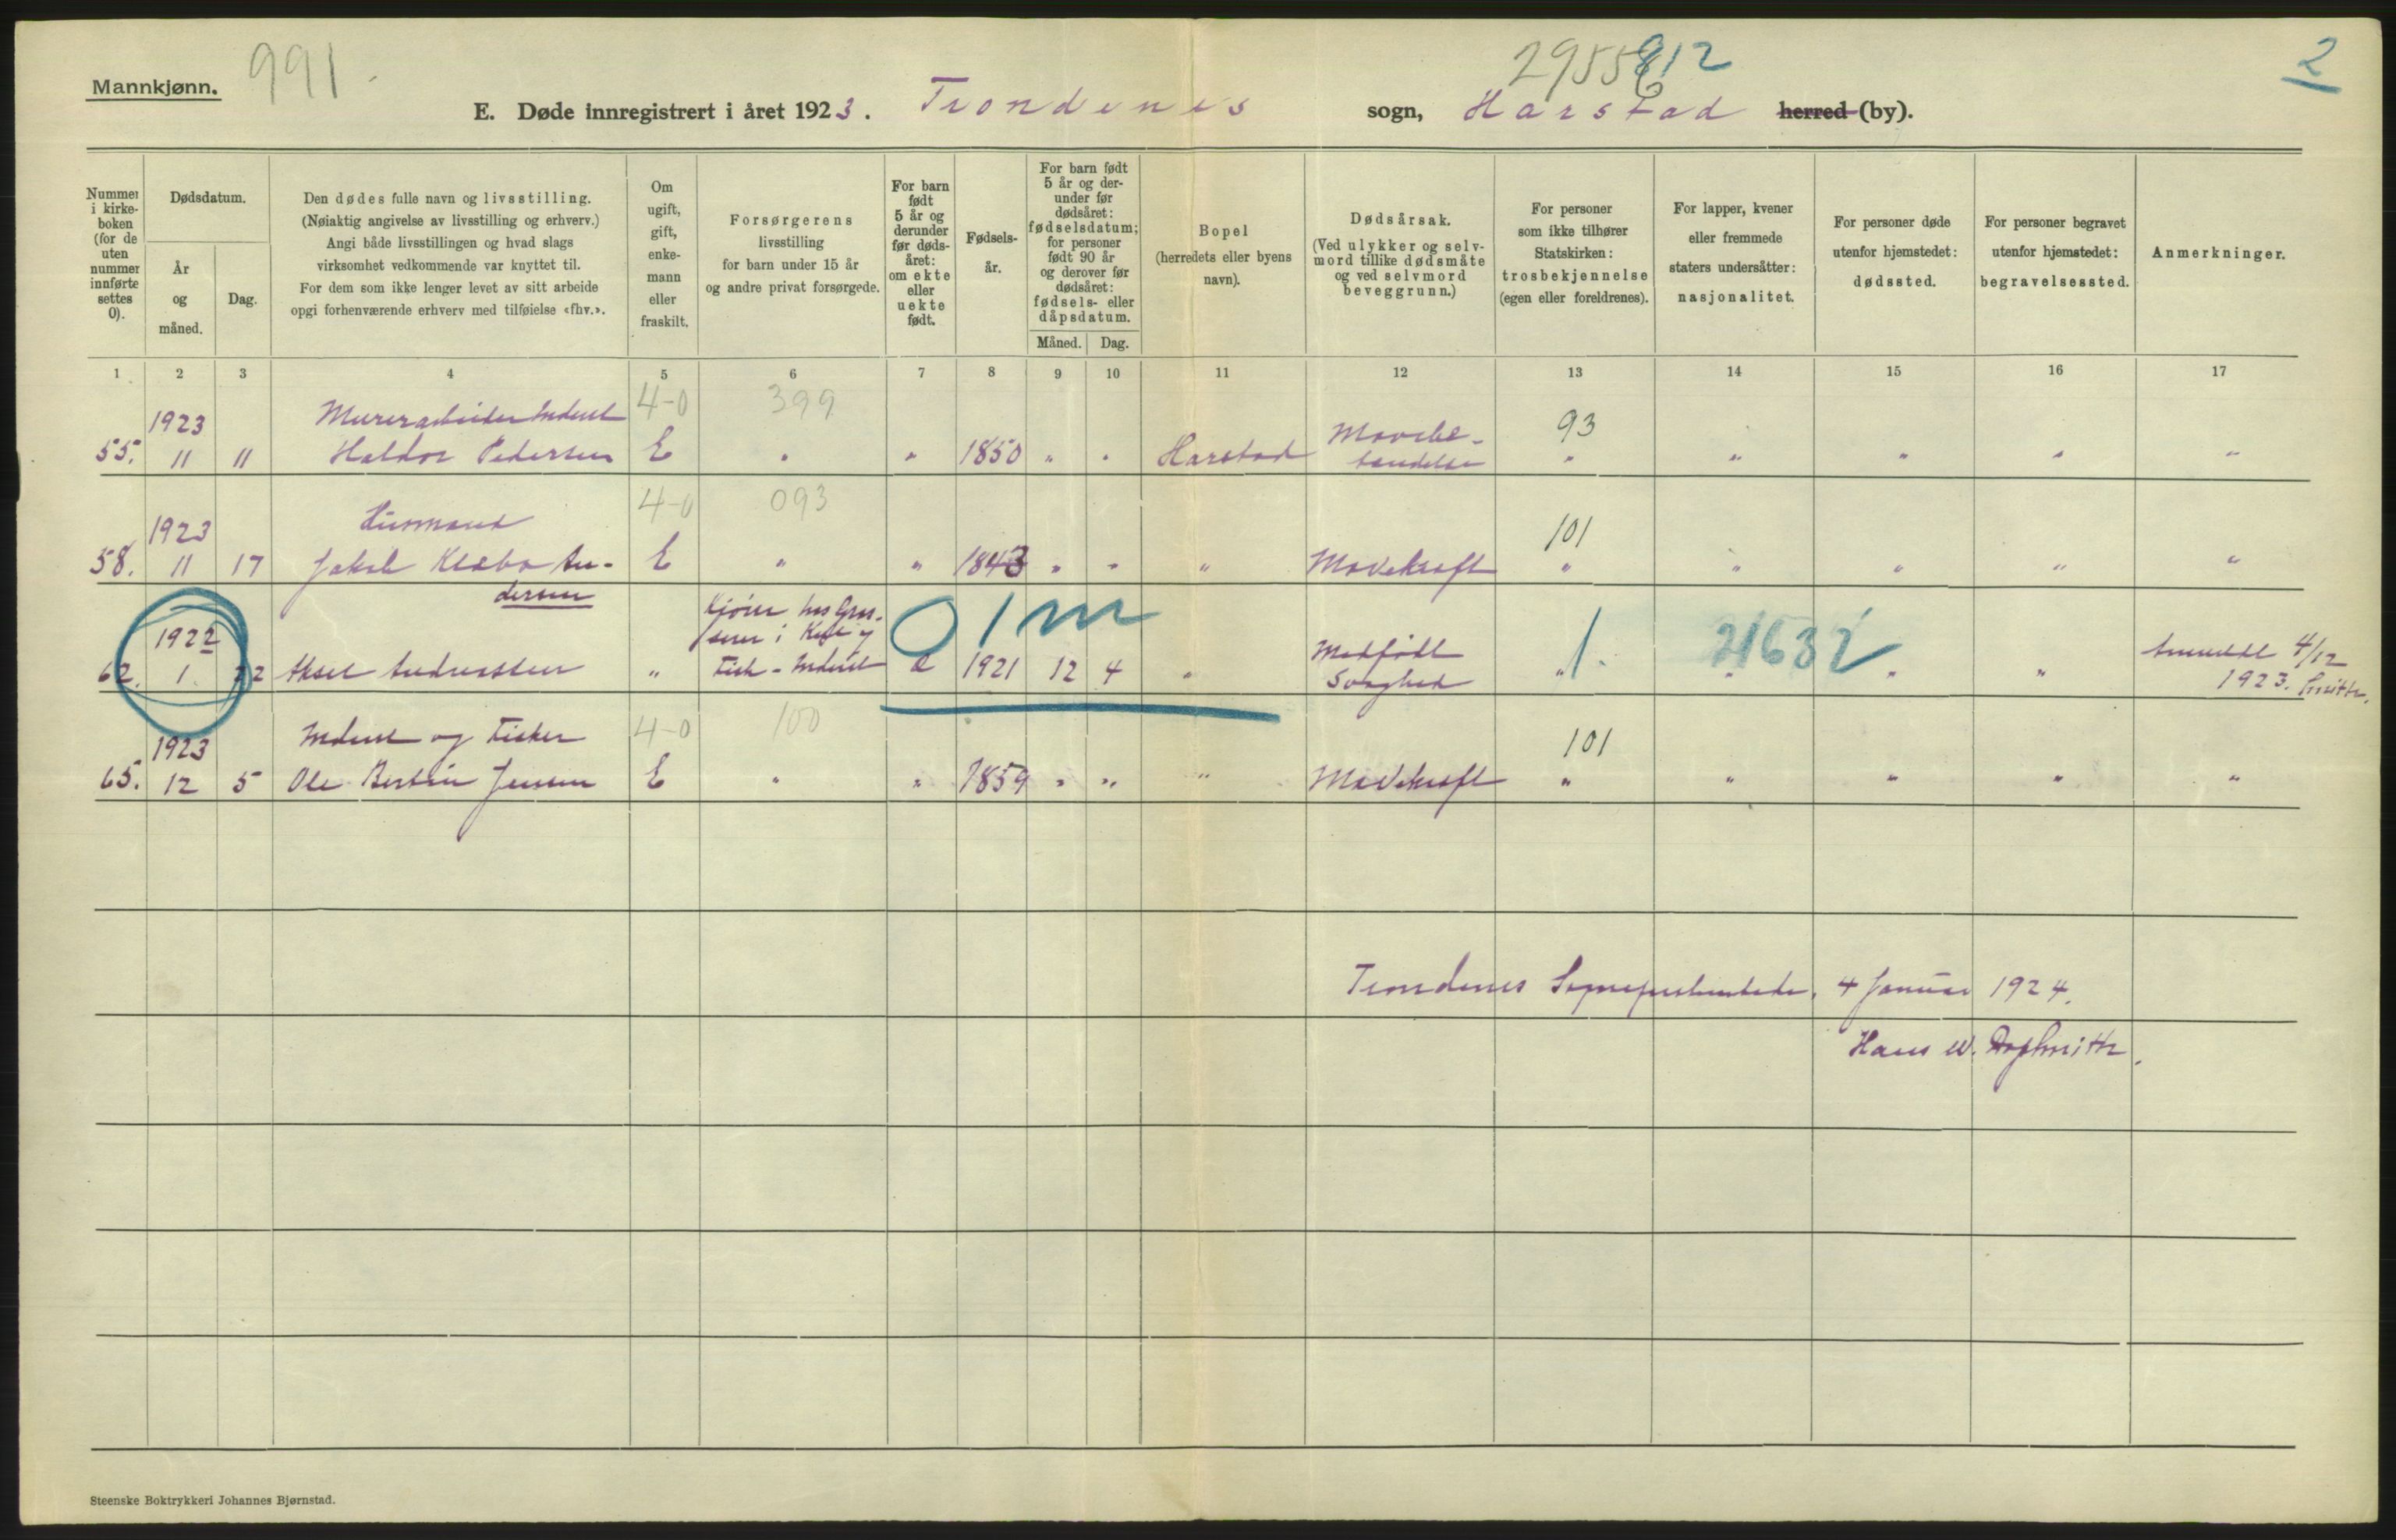 Mannkjønn.
991.
29556
812
2
E. Døde innregistrert i året 1923. Trondenes sogn, Harstad herred (by).
Nummer i kirkeboken (for de uten nummer innførte settes 0).
Dødsdatum.
År og måned.
Dag.
Den dødes fulle navn og livsstilling.
(Nøiaktig angivelse av livsstilling og erhverv.)
Angi både livsstillingen og hvad slags
virksomhet vedkommende var knyttet til.
For dem som ikke lenger levet av sitt arbeide
opgi forhenværende erhverv med tilføielse «fhv.».
Om ugift, gift, enkemann eller fraskilt.
Forsørgerens
livsstilling
for barn under 15 år
og andre privat forsørgede.
For barn født 5 år og derunder før dødsåret: om ekte eller uekte født.
Fødselsår.
For barn født 5 år og derunder før dødsåret: fødselsdatum; for personer født 90 år og derover før dødsåret: fødsels- eller dåpsdatum.
Måned.
Dag.
Bopel
(herredets eller byens
navn).
Dødsårsak.
(Ved ulykker og selvmord tillike dødsmåte og ved selvmord beveggrunn.)
For personer
som ikke tilhører
Statskirken:
trosbekjennelse
(egen eller foreldrenes).
For lapper, kvener
eller fremmede
staters undersåtter:
nasjonalitet.
For personer døde
utenfor hjemstedet:
dødssted.
For personer begravet
utenfor hjemstedet:
begravelsessted.
Anmerkninger.
1 2 3 4 5 6 7 8 9 10 11 12 13 14 15 16 17
1923 Murerarbeider Inderst 4-0 399 Mavebe- 93
55. 11 11 Haldor Pedersen E " " 1850 " " Harstad tændelse " " " " "
1923 Husmand 4-0 093 101
58. 11 17 Jakob Klæbo An- E " " 1843 " " " Mavekræft " " " " "
dersen
1922 01m 1. 21632
62. 1. 22 Aksel Andreassen " Fisk-Inderst e 1921 12 4 " Medfødt Svaghed " " " " Anmeldt 4/12
1923. Smith.
1923 Inderst og Fisker 4-0 100 101
65. 12 5 Ole Bertin Jensen E " " 1859 " " " Mavekræft " " " " "
Trondenes Sogneprestembede, 4 Januar 1924.
Hans W. Smith.
Steenske Boktrykkeri Johannes Bjørnstad.